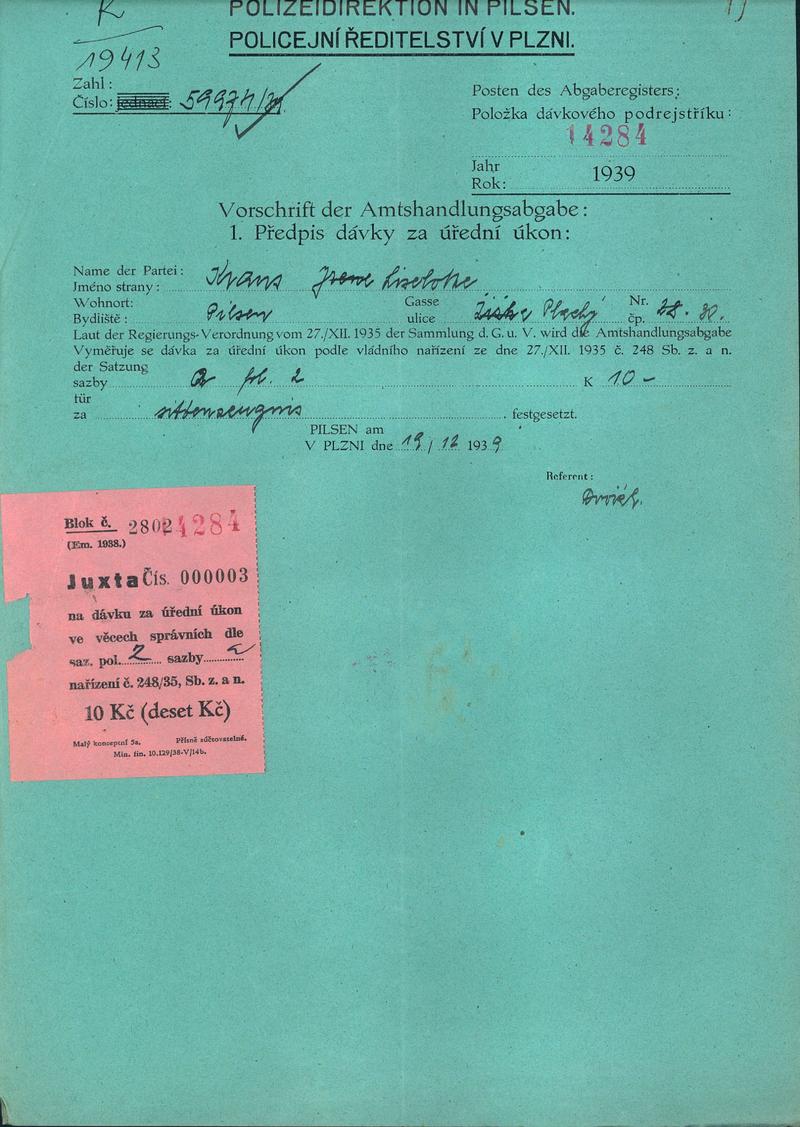 K
19413
POLIZEIDIREKTION IN PILSEN.
POLICEJNÍ ŘEDITELSTVÍ V PLZNI.
Zahl:
Číslo: jednací:
Posten des Abgaberegisters:
Položka dávkového podrejstříku:
14284
Jahr
Rok: 1939
Vorschrift der Amtshandlungsabgabe:
1. Předpis dávky za úřední úkon:
Name der Partei:
Jméno strany: Kraus Irene Liselotte
Wohnort: Gasse Nr.
Bydliště: Pilsen ulice čp.
Laut der Regierungs-Verordnung vom 27./XII. 1935 der Sammlung d. G. u. V. wird die Amtshandlungsabgabe
Vyměřuje se dávka za úřední úkon podle vládního nařízení ze dne 27./XII. 1935 č. 248 Sb. z. a n.
der Satzung
sazby pol. 2 K 10-
tür
za sittenzeugnis festgesetzt.
PILSEN am
V PLZNI dne 19./12 1939
Referent:
Blok č. 2802 14284
(Em. 1938.)
Juxta Čís. 000003
na dávku za úřední úkon
ve věcech správních dle
saz. pol. 2 sazby
nařízení č. 248/35, Sb. z. a n.
10 Kč (deset Kč)
Malý konceptní 5a. Přísně zúčtovatelné.
Min. fin. 10.129/38-V/14b.